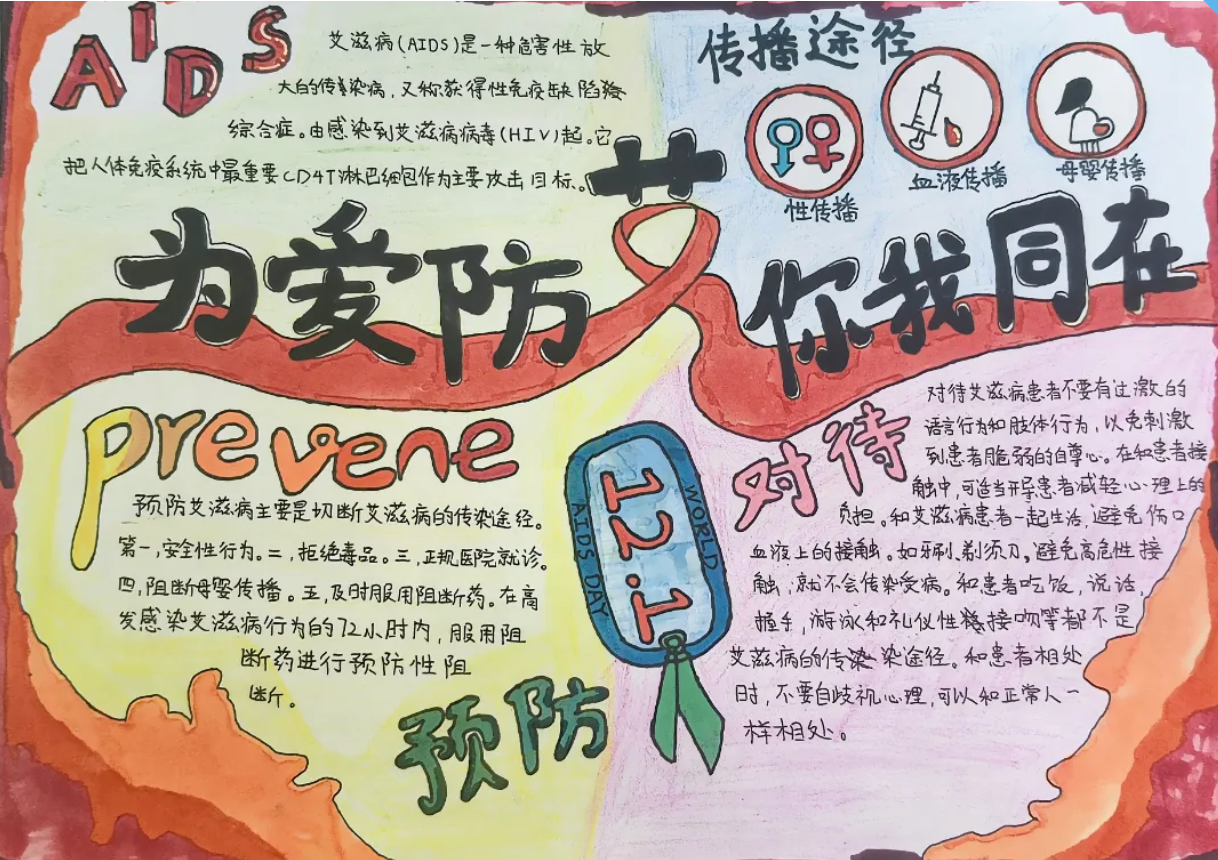 AIDS
艾滋病(AIDS)是一种危害性放
大的传染病，又称获得性免疫缺陷
综合症。由感染到艾滋病病毒(HIV)起。它
把人体免疫系统中最重要CD4T淋巴细包作为主要攻击目标。
传播途径
性传播
血液传播
母婴传播
为爱防艾
你我同在
prevene
预防艾滋病主要是切断艾滋病的传染途径。
第一，安全性行为。二，拒绝毒品。三，正规医院就诊。
四，阻断母婴传播。五，及时服用阻断药。在高
发感染艾滋病行为的72小时内，服用阻
断药进行预防性阻
断。
预防
WORLD
12.1
AIDS DAY
对待
对待艾滋病患者不要有过激的
语言行为和肢体行为，以免刺激
到患者脆弱的自尊心。在和患者接
触中，可适当开导患者减轻心理上的
负担。和艾滋病患者一起生活，避免伤口
血液上的接触。如牙刷、剃须刀，避免高危性接
触，就不会传染受病。和患者吃饭，说话，
握手，游泳和礼仪性接吻等都不是
艾滋病的传染染途径。和患者相处
时，不要自歧视心理，可以和正常人一
样相处。